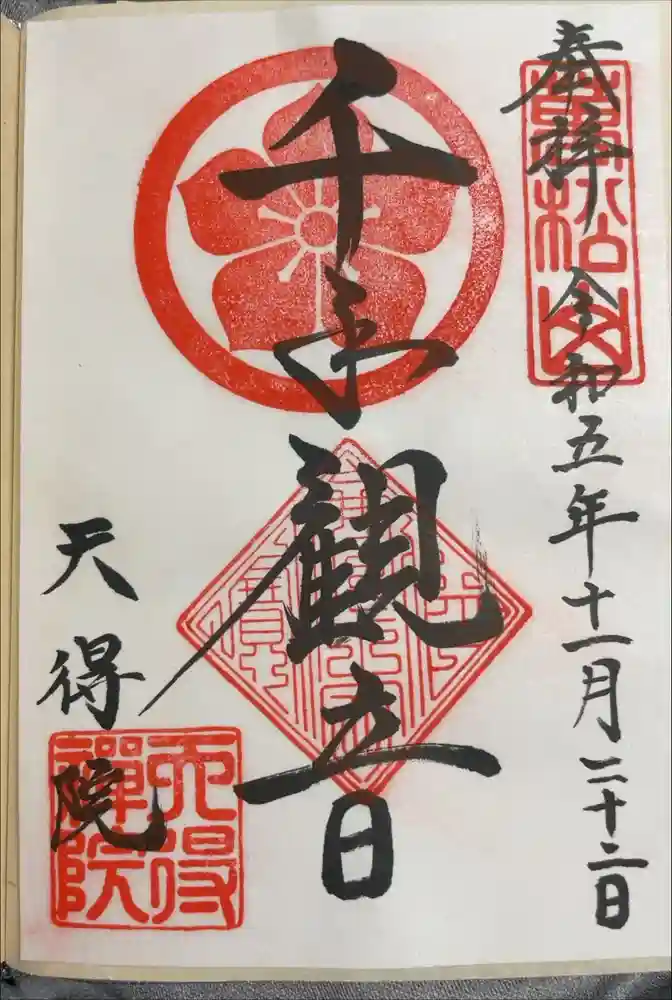 奉拝 令和五年十一月二十二日
萬松山
千手観音
天得院
天得禪院